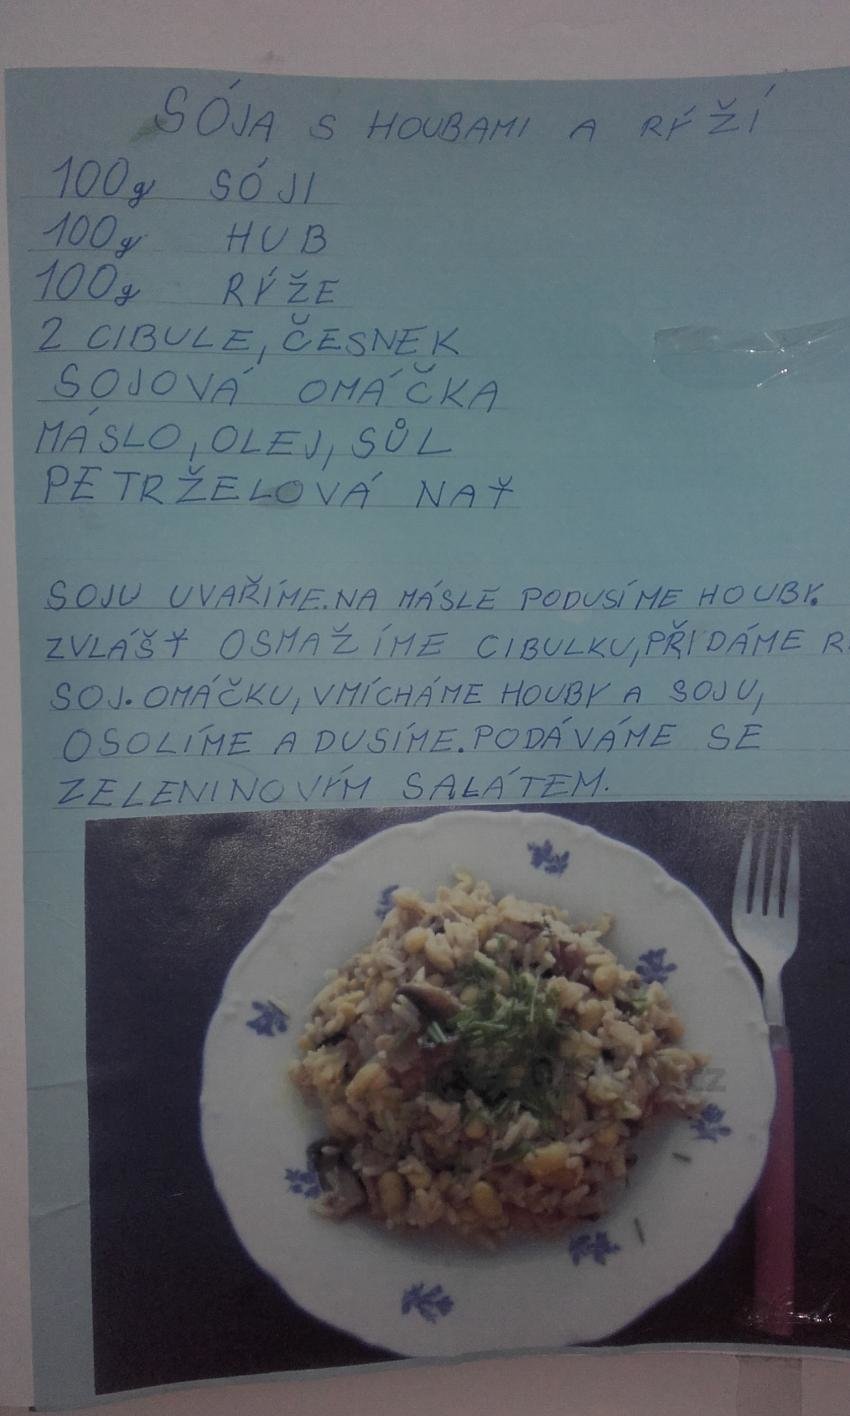 SÓJA S HOUBAMI A RÝŽÍ
100g SÓJI
100g HUB
100g RÝŽE
2 CIBULE, ČESNEK
SOJOVÁ OMÁČKA
MÁSLO, OLEJ, SŮL
PETRŽELOVÁ NAŤ
SOJU UVAŘÍME. NA MÁSLE PODUSÍME HOUBY.
ZVLÁŠŤ OSMAŽÍME CIBULKU, PŘIDÁME
SOJ. OMÁČKU, VMÍCHÁME HOUBY A SOJU,
OSOLÍME A DUSÍME. PODÁVÁME SE
ZELENINOVÝM SALÁTEM.